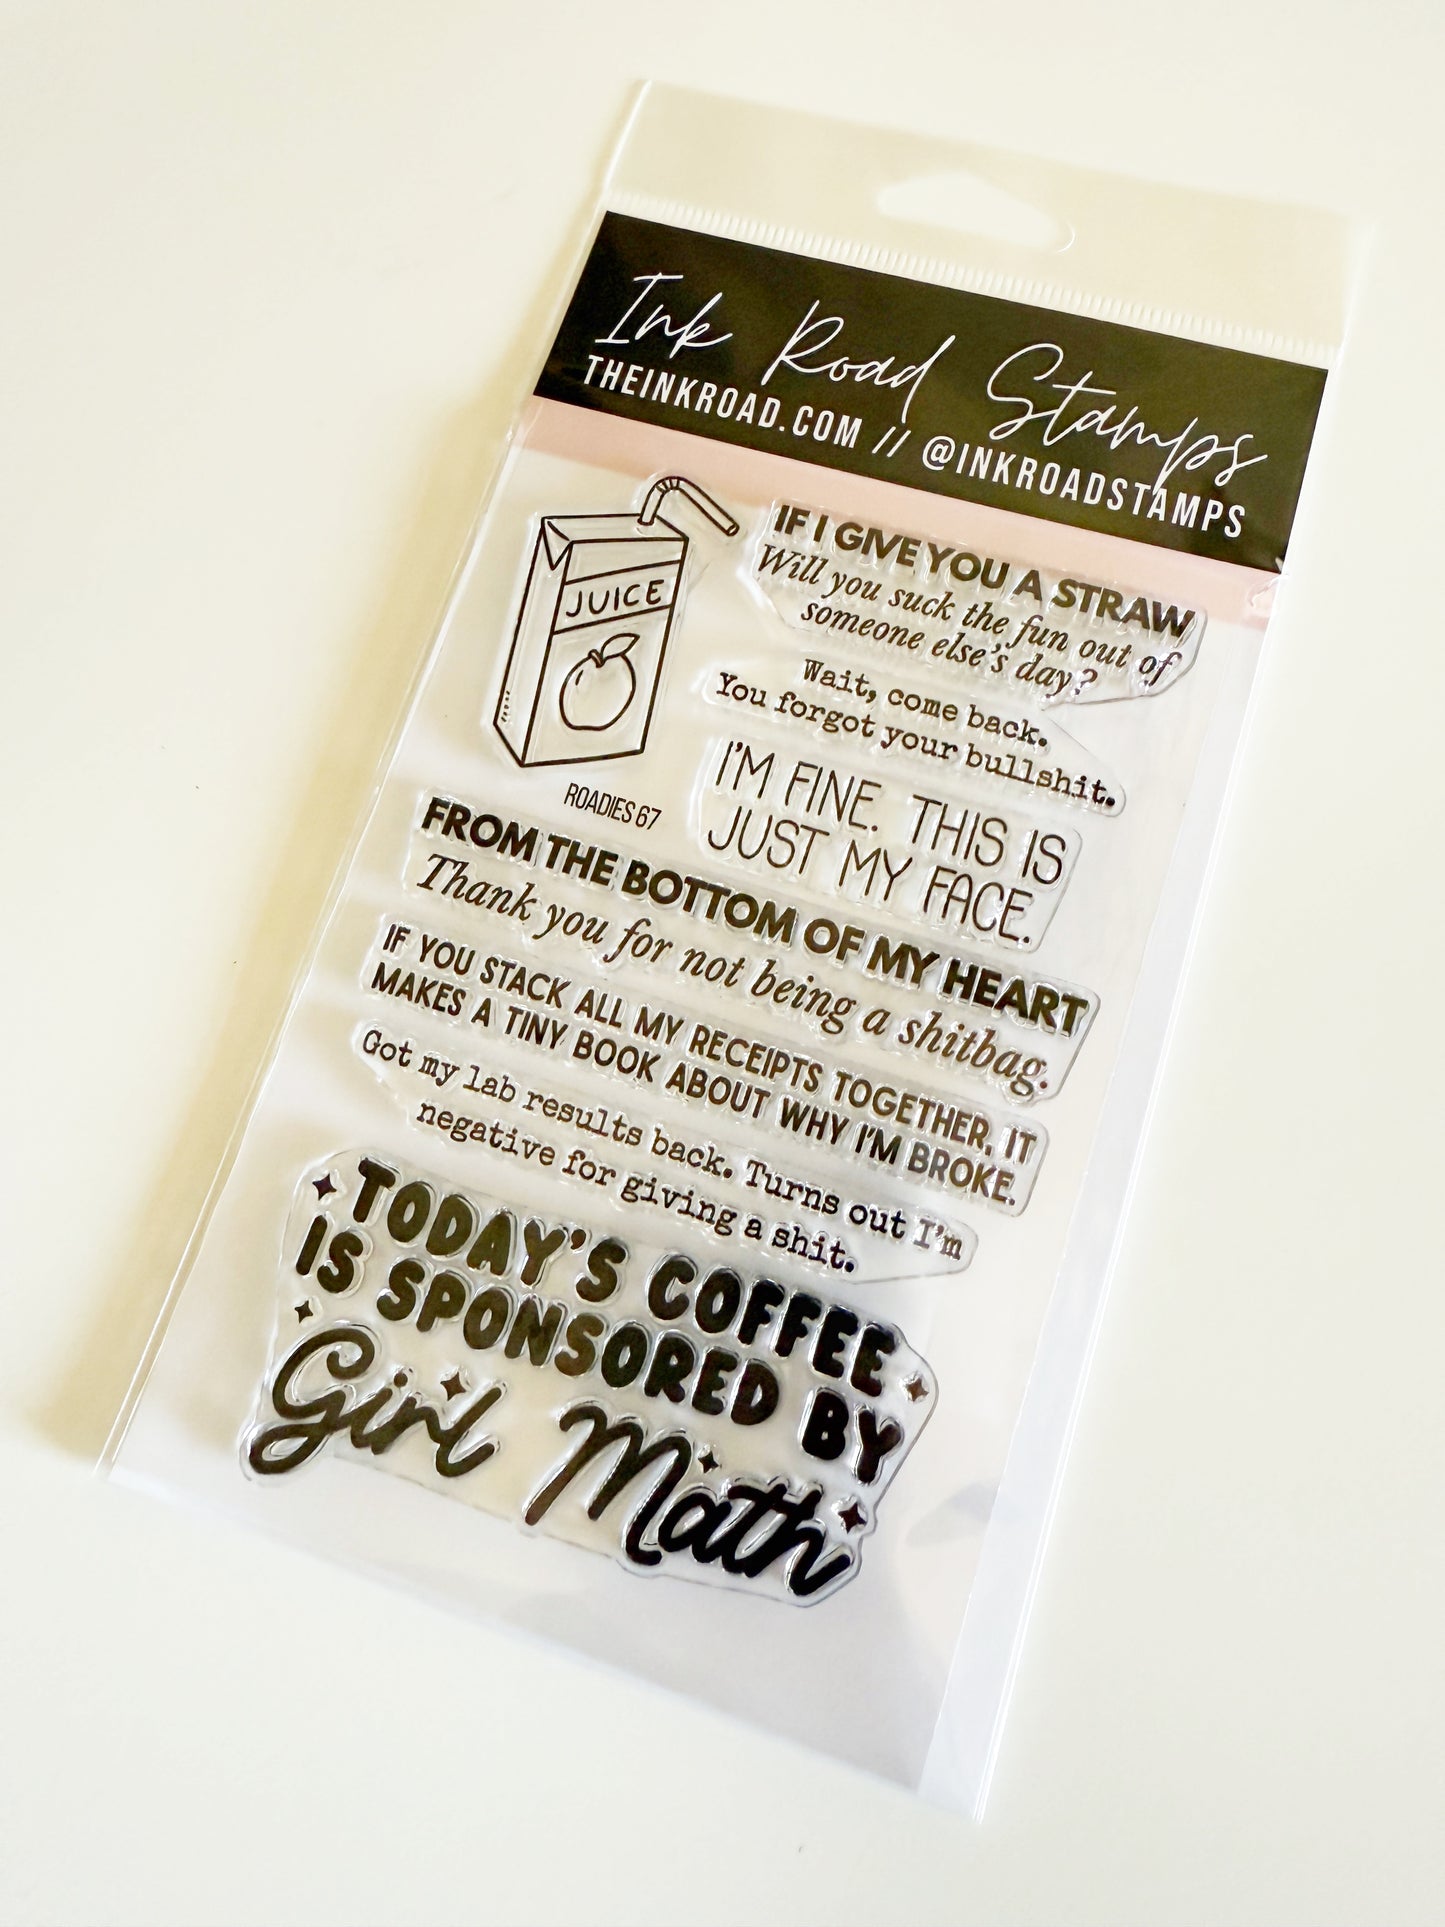 Ink Road Stamps
THEINKROAD.COM // @INKROADSTAMPS
JUICE
IF I GIVE YOU A STRAW
Will you suck the fun out of
someone else's day?
Wait, come back.
You forgot your bullshit.
I'M FINE. THIS IS
JUST MY FACE.
ROADIES 67
FROM THE BOTTOM OF MY HEART
Thank you for not being a shitbag.
IF YOU STACK ALL MY RECEIPTS TOGETHER, IT
MAKES A TINY BOOK ABOUT WHY I'M BROKE.
Got my lab results back. Turns out I'm
negative for giving a shit.
TODAY'S COFFEE
IS SPONSORED BY
Girl Math